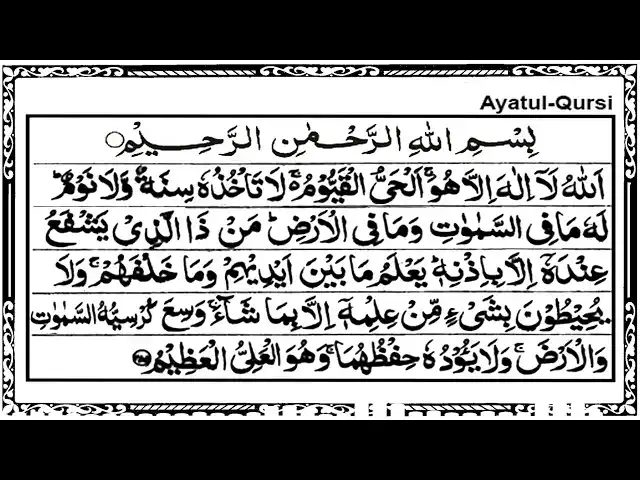 Ayatul-Qursi
بِسْمِ اللهِ الرَّحْمٰنِ الرَّحِيْمِ
اَللهُ لَآ اِلٰهَ اِلَّا هُوَ ۚ اَلْحَىُّ الْقَيُّوْمُ ۚ لَا تَاْخُذُهٗ سِنَةٌ وَّلَا نَوْمٌ ؕ
لَهٗ مَا فِى السَّمٰوٰتِ وَمَا فِى الْاَرْضِ ؕ مَنْ ذَا الَّذِىْ يَشْفَعُ
عِنْدَهٗۤ اِلَّا بِاِذْنِهٖ ؕ يَعْلَمُ مَا بَيْنَ اَيْدِيْهِمْ وَمَا خَلْفَهُمْ ۚ وَلَا
يُحِيْطُوْنَ بِشَىْءٍ مِّنْ عِلْمِهٖۤ اِلَّا بِمَا شَآءَ ۚ وَسِعَ كُرْسِيُّهُ السَّمٰوٰتِ
وَالْاَرْضَ ۚ وَلَا يَـُٔوْدُهٗ حِفْظُهُمَا ۚ وَهُوَ الْعَلِىُّ الْعَظِيْمُ